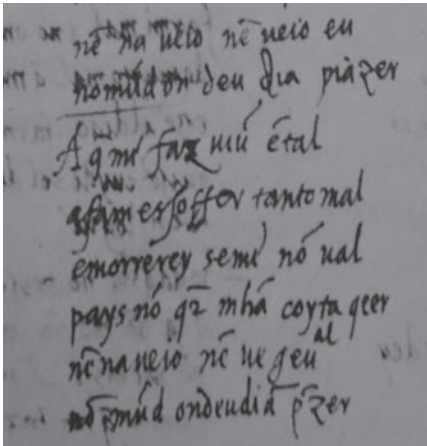 nẽ na ueio nẽ ueio eu
nomũd on deu dia prazer
A q̃ mi faz uiu ẽtal
afam e soffer tanto mal
e morrerey se mi nõ ual
poys nõ q̃r mha coyta qeer
nẽ na ueio nẽ ueg eu al
nõ mũd ondeu dia p̃zer